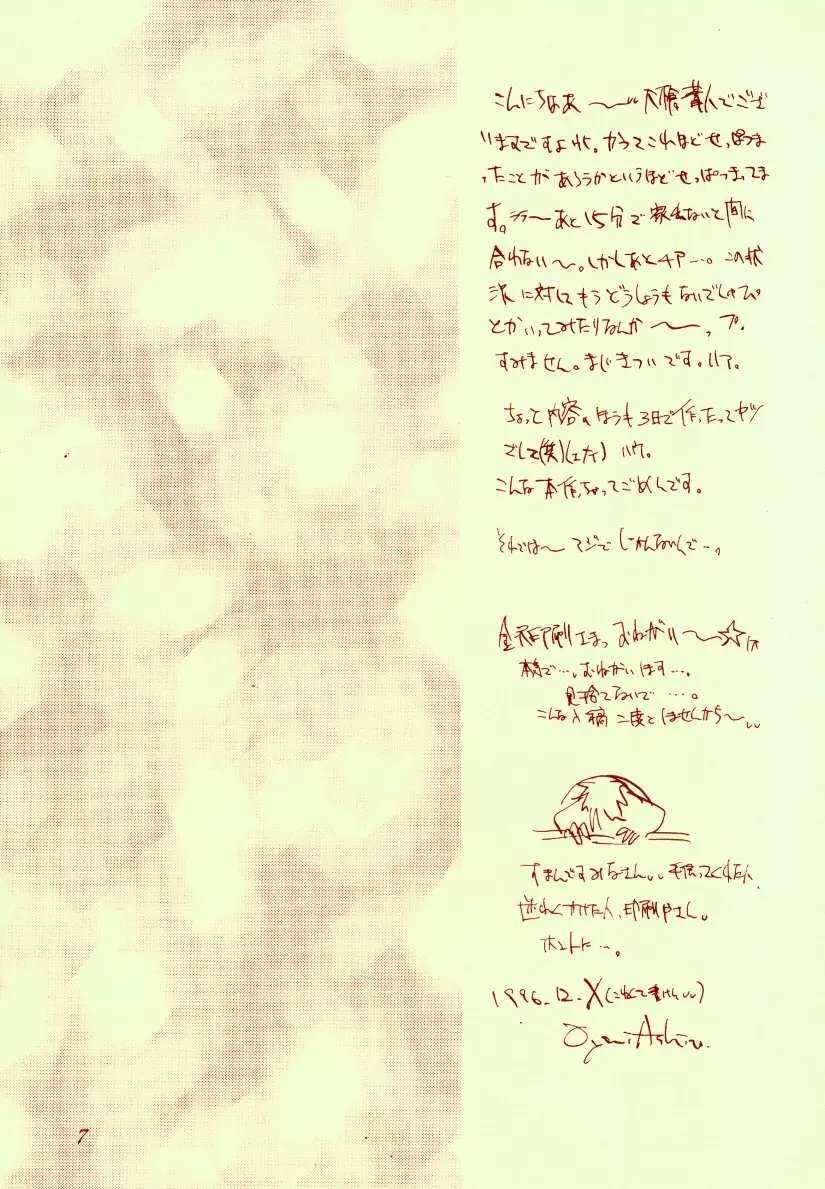 こんにちなあ〜〜 大槍葦人でござ
いますですよ
かつてこれほどせっぱつま
ったことがあろうかというほどせっぱつまってま
す。あと15分で家出ないと間に
合わない〜。しかしあと4P…。この状
況に対してもうどうしようもないでしゅぴ
とかいってみたりなんか〜〜
すみません。まじきついです。
ちょっと内容のほうも3日で作ったってヤツ
でして(笑)
こんな本作っちゃってごめんです。
それでは〜 マジで
おねがい〜〜☆
おねがいします…。
見捨てないで…。
こんな入稿二度としませんから〜
すまんですみなさん 手伝ってくれた人、
迷わくかけた人、印刷屋さん。
ホントに…。
1996.12.X